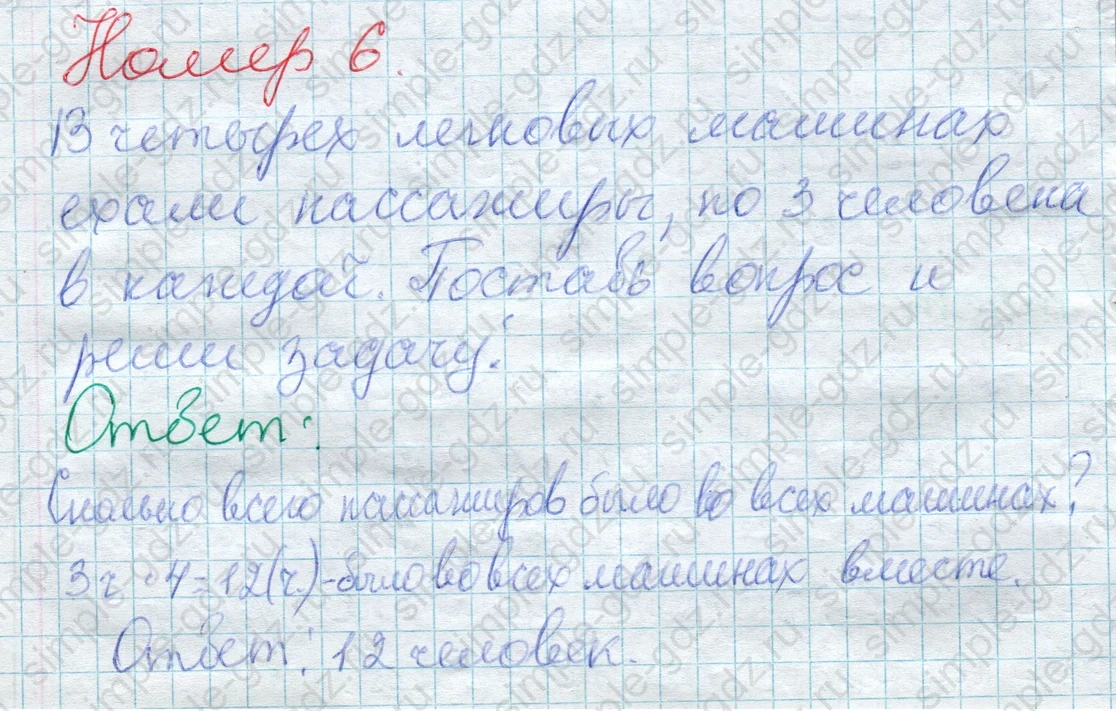 Номер 6.
В четырех легковых машинах
ехали пассажиры, по 3 человека
в каждой. Поставь вопрос и
реши задачу.
Ответ:
Сколько всего пассажиров было во всех машинах?
3 ч · 4 = 12 (ч.) - было во всех машинах вместе.
Ответ: 12 человек.
simple-gdz.ru